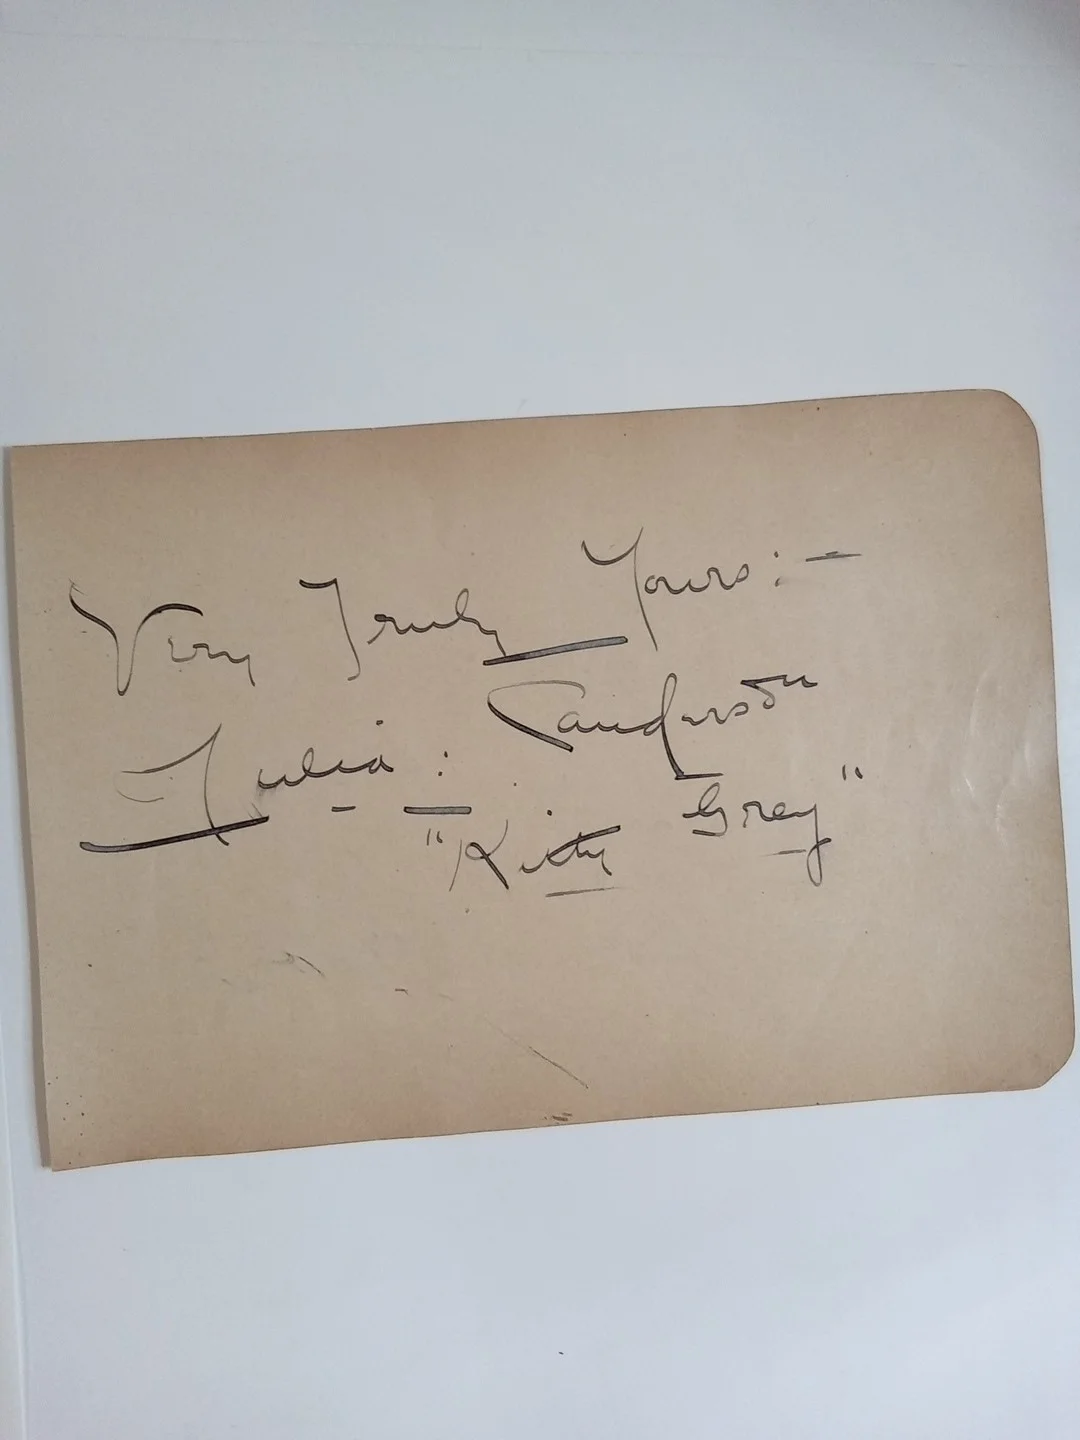 Very Truly Yours:-
Julia: Sanderson
"Kitty Grey"